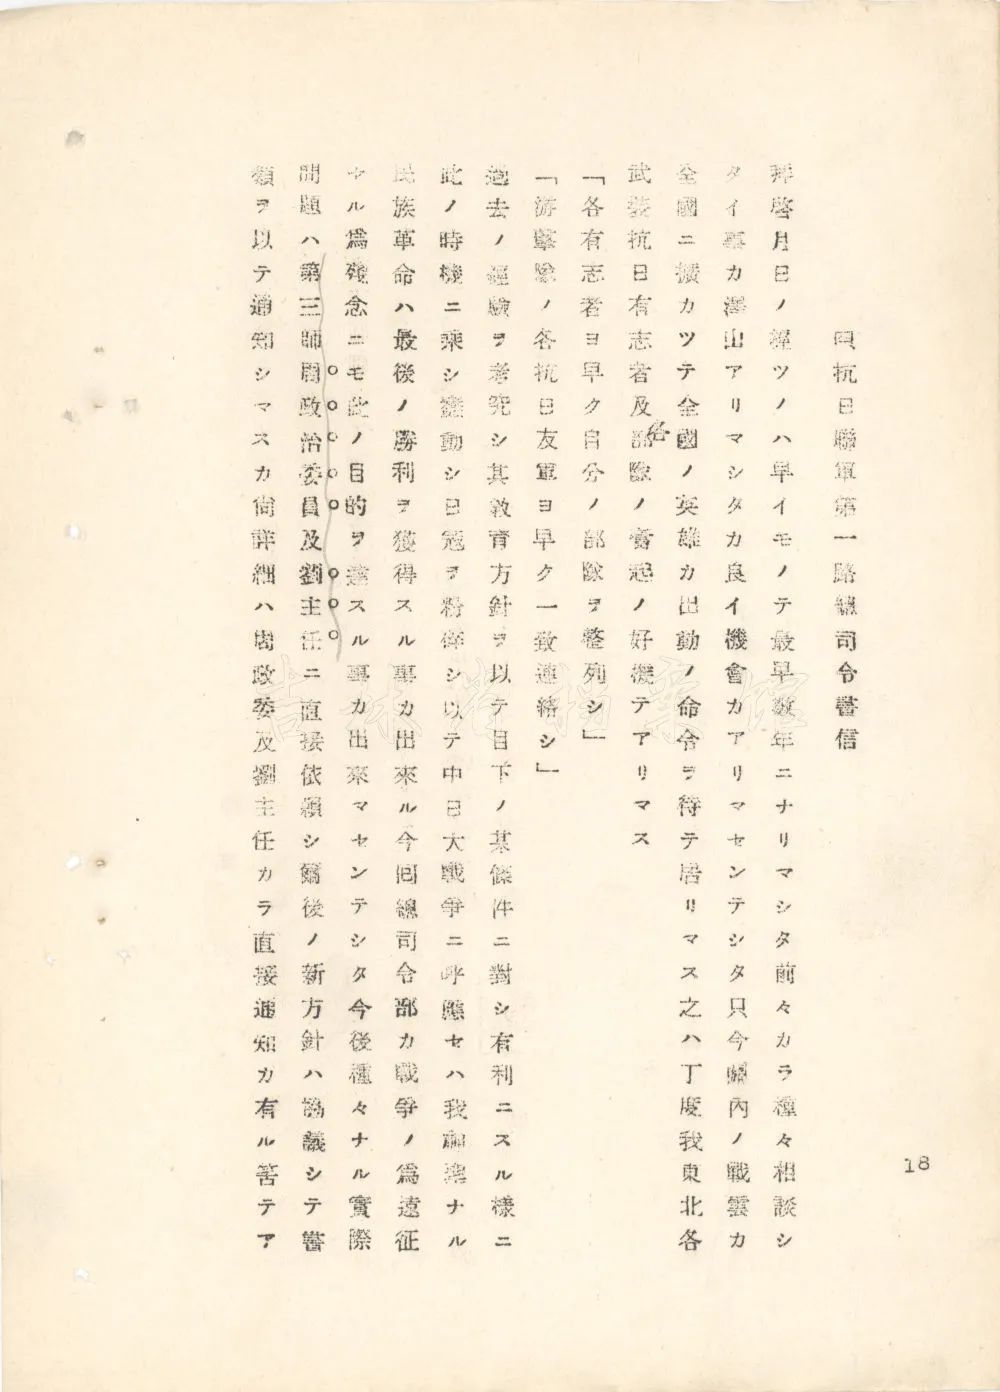 四抗日聯軍第一路總司令書信
拜啓月日ノ經ツノハ早イモノテ最早数年ニナリマシタ前々カラ種々相談シ
タイ事カ澤山アリマシタカ良イ機會カアリマセンテシタ只今關内ノ戰雲カ
全國ニ擴カツテ全國ノ英雄カ出動ノ命令ヲ待テ居リマス之ハ丁度我東北各
武裝抗日有志者及各部隊ノ奮起ノ好機テアリマス
「各有志者ヨ早ク自分ノ部隊ヲ整列シ」
「游擊隊ノ各抗日友軍ヨ早ク一致連絡シ」
過去ノ經驗ヲ考究シ其敎育方針ヲ以テ目下ノ某條件ニ對シ有利ニスル様ニ
此ノ時機ニ乘シ蠢動シ日寇ヲ粉碎シ以テ中日大戰爭ニ呼應セハ我神聖ナル
民族革命ハ最後ノ勝利ヲ獲得スル事カ出來ル今回總司令部カ戰爭ノ爲遠征
セル爲殘念ニモ此ノ目的ヲ達スル事カ出來マセンテシタ今後種々ナル實際
問題ハ第三師周政治委員及劉主任ニ直接依賴シ爾後ノ新方針ハ協議シテ書
類ヲ以テ通知シマスカ尙詳細ハ周政委及劉主任カラ直接通知カ有ル筈テア
18
吉林省档案馆